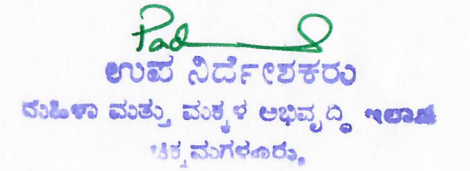 ಉಪ ನಿರ್ದೇಶಕರು
ಮಹಿಳಾ ಮತ್ತು ಮಕ್ಕಳ ಅಭಿವೃದ್ಧಿ ಇಲಾಖೆ
ಚಿಕ್ಕಮಗಳೂರು.